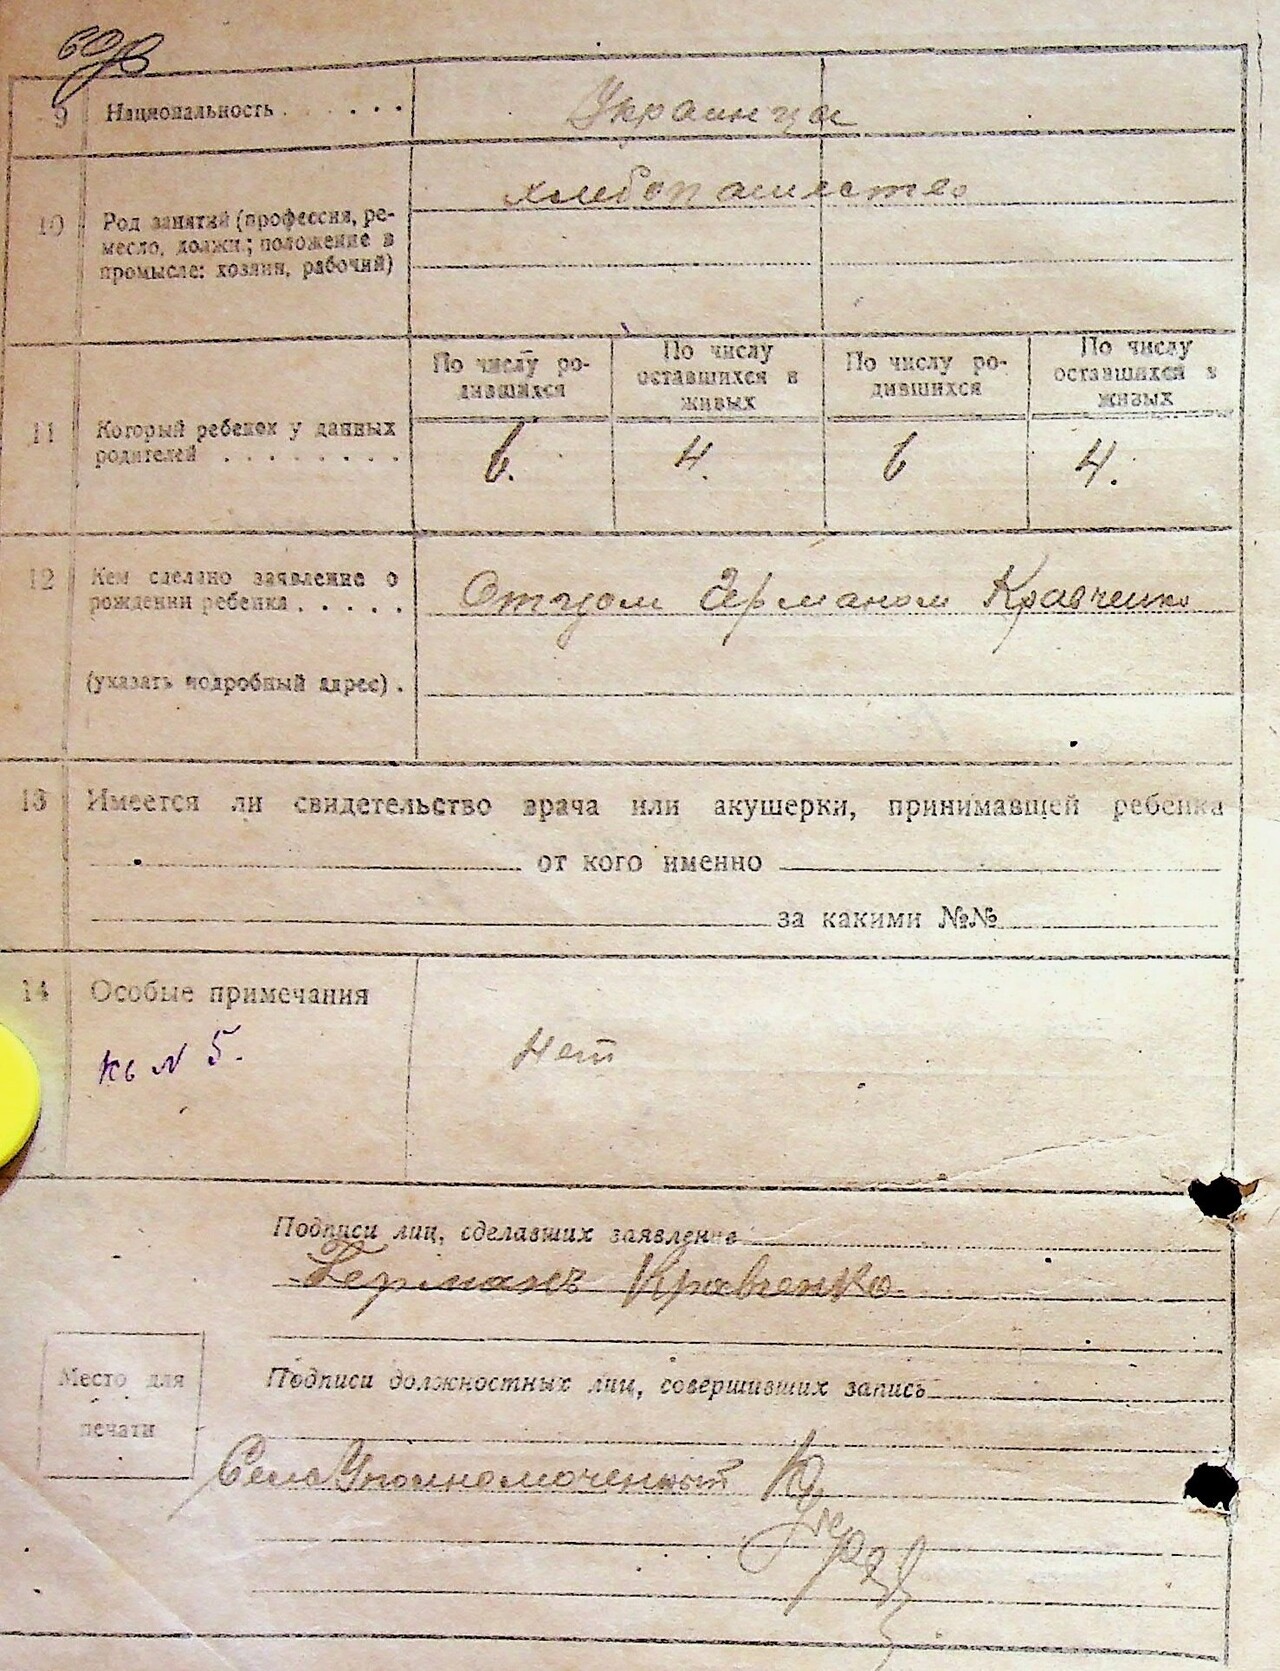 60
9 Национальность . . . . . . Украинцы
хлебопашество
10 Род занятий (профессия, ре-
месло, должн.; положение в
промысле: хозяин, рабочий)
По числу ро-
дившихся
По числу
оставшихся в
живых
По числу ро-
дившихся
По числу
оставшихся в
живых
11 Который ребенок у данных
родителей . . . . . . . .
6. 4. 6 4.
12 Кем сделано заявление о
рождении ребенка . . . . . Отцом Германом Кравченко
(указать подробный адрес) .
13 Имеется ли свидетельство врача или акушерки, принимавшей ребенка
от кого именно
за какими №№
14 Особые примечания
кь N 5. нет
Подписи лиц, сделавших заявление
Германъ Кравченко
Место для
печати
Подписи должностных лиц, совершивших запись
СельУполномоченный